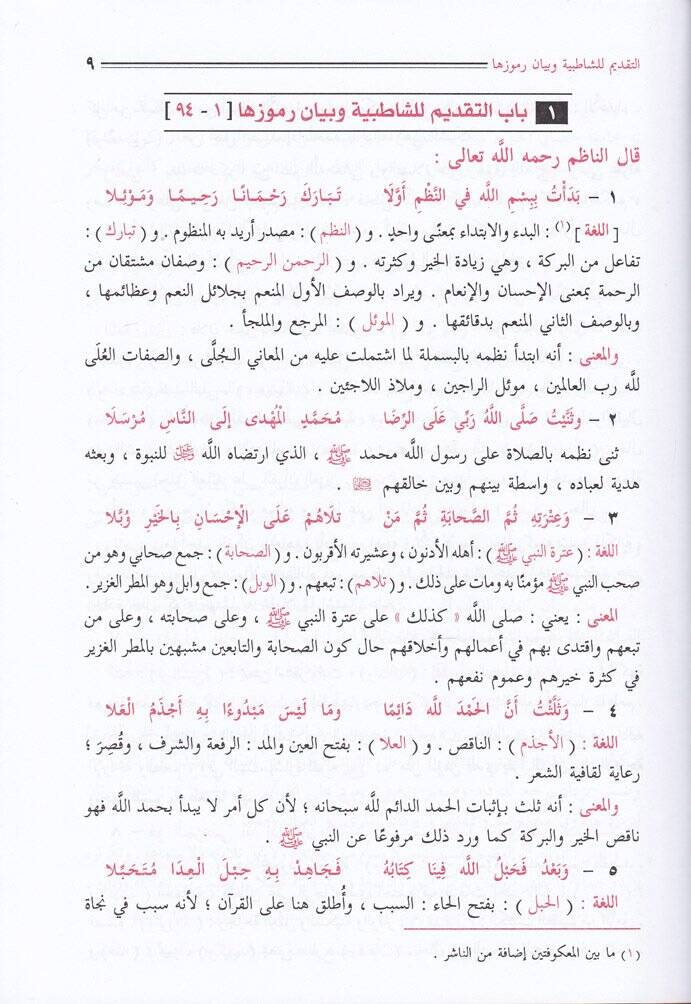 التقديم للشاطبية وبيان رموزها ٩
١ باب التقديم للشاطبية وبيان رموزها [ ١ - ٩٤ ]
قال الناظم رحمه اللَّه تعالى :
١ - بَدَأْتُ بِبِسْمِ اللَّه في النَّظْمِ أَوَّلَا تَبَارَكَ رَحْمَانًا رَحِيمًا وَمَوْئِلا
[ اللغة ] (١) : البدء والابتداء بمعنًى واحدٍ . و ( النظم ) : مصدر أريد به المنظوم . و ( تبارك ) :
تفاعل من البركة ، وهي زيادة الخير وكثرته . و ( الرحمن الرحيم ) : وصفان مشتقان من
الرحمة بمعنى الإحسان والإنعام . ويراد بالوصف الأول المنعم بجلائل النعم وعظائمها ،
وبالوصف الثاني المنعم بدقائقها . و ( الموئل ) : المرجع والملجأ .
والمعنى : أنه ابتدأ نظمه بالبسملة لما اشتملت عليه من المعاني الجُلَّى ، والصفات العُلَى
للَّه رب العالمين ، موئل الراجين ، وملاذ اللاجئين .
٢ - وثَنَّيْتُ صَلَّى اللَّهُ رَبِّي عَلَى الرِّضَا مُحَمَّدٍ الْمُهْدى إلَى النَّاسِ مُرْسَلَا
ثنى نظمه بالصلاة على رسول اللَّه محمد ﷺ ، الذي ارتضاه اللَّه ﷻ للنبوة ، وبعثه
هدية لعباده ، واسطة بينهم وبين خالقهم .
٣ - وَعِتْرَتِهِ ثُمَّ الصَّحَابَةِ ثُمَّ مَنْ تَلاهُمْ عَلَى الْإِحْسَانِ بِالخَيْرِ وُبَّلا
اللغة : ( عترة النبي ﷺ ) : أهله الأدنون ، وعشيرته الأقربون . و ( الصحابة ) : جمع صحابي وهو من
صحب النبي ﷺ مؤمنًا به ومات على ذلك . و ( تلاهم ) : تبعهم . و ( الوبل ) : جمع وابل وهو المطر الغزير .
المعنى : يعني : صلى اللَّه « كذلك » على عترة النبي ﷺ ، وعلى صحابته ، وعلى من
تبعهم واقتدى بهم في أعمالهم وأخلاقهم حال كون الصحابة والتابعين مشبهين بالمطر الغزير
في كثرة خيرهم وعموم نفعهم .
٤ - وَثَلَّثْتُ أَنَّ الحَمْدَ للَّه دَائِمًا وَمَا لَيْسَ مَبْدُوءًا بِهِ أَجْذَمُ الْعَلا
اللغة : ( الأجذم ) : الناقص . و ( العلا ) : بفتح العين والمد : الرفعة والشرف ، وقُصِرَ ؛
رعاية لقافية الشعر .
والمعنى : أنه ثلث بإثبات الحمد الدائم للَّه سبحانه ؛ لأن كل أمر لا يبدأ بحمد اللَّه فهو
ناقص الخير والبركة كما ورد ذلك مرفوعًا عن النبي ﷺ .
٥ - وَبَعْدُ فَحَبْلُ اللَّه فِينَا كِتَابُهُ فَجَاهِدْ بِهِ حِبْلَ الْعِدَا مُتَحَبِّلا
اللغة : ( الحبل ) : بفتح الحاء : السبب ، وأُطلق هنا على القرآن ؛ لأنه سبب في نجاة
(١) ما بين المعكوفتين إضافة من الناشر .